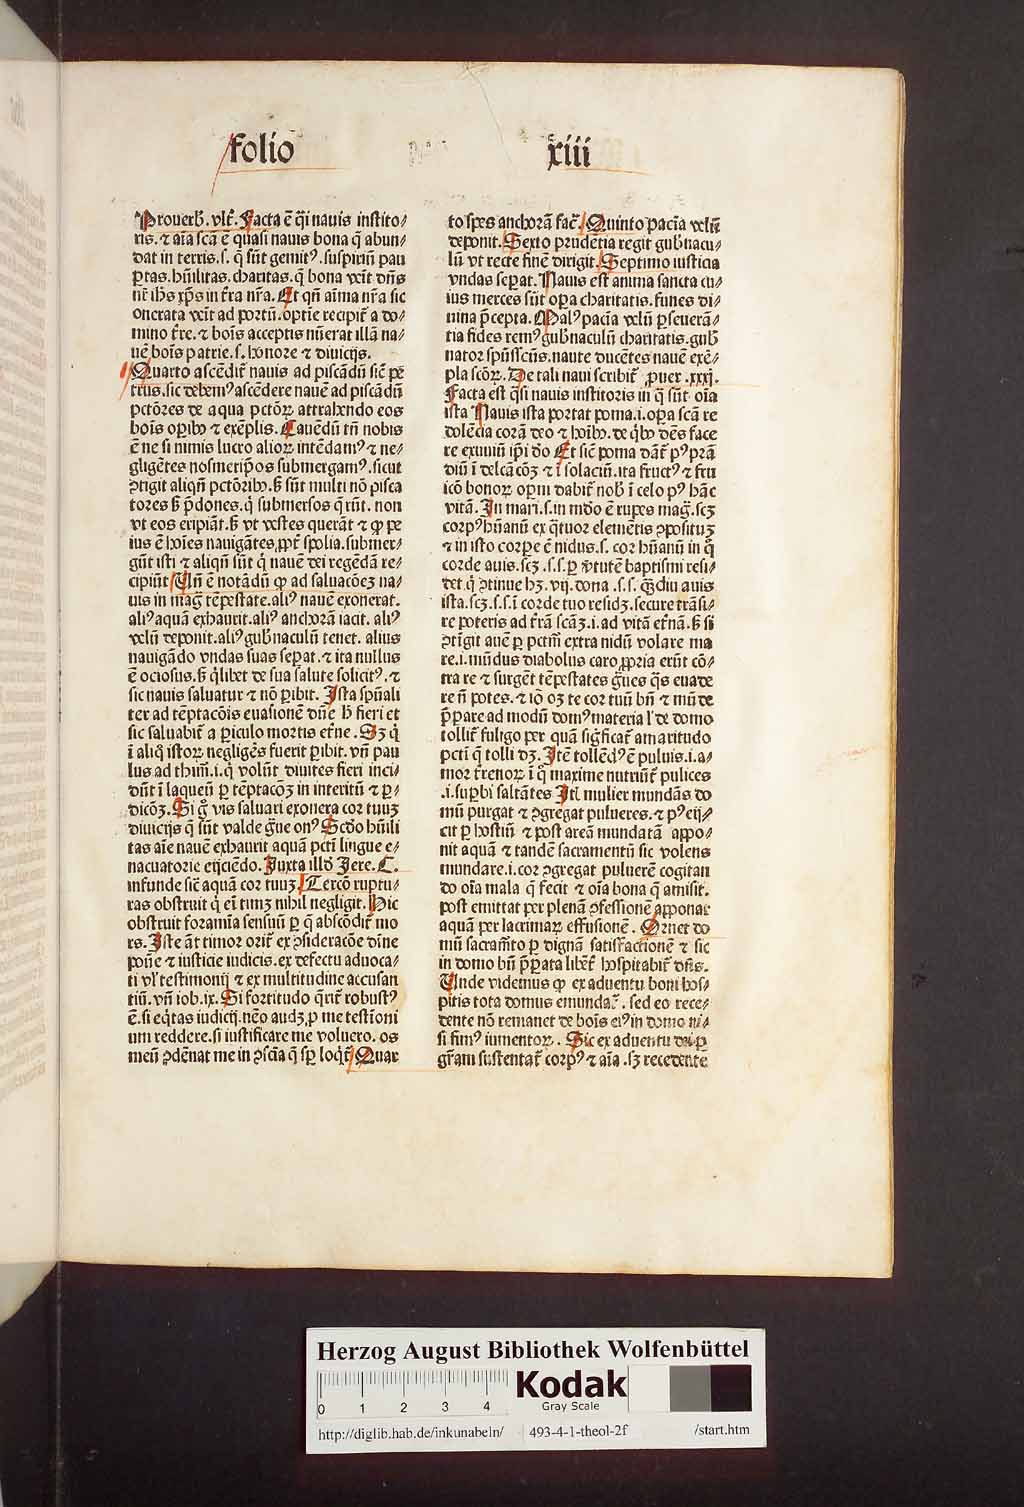 folio xiii
Prouerb̄. vlt̄. Facta ē q̄i nauis instito⸗
ris. ⁊ aīa scā ē quasi nauis bona q̄ abun⸗
dat in terris. s. q̄ sūt gemitꝰ. suspiriū pau
ꝑtas. hūilitas. charitas. q̄ bona veīt dn̄s
nr̄ ih̄s xp̄s in t̄ra nr̄a. Et qn̄ aīma nr̄a sic
onerata veīt ad portū. optīe recipit̄ a do⸗
mino t̄re. ⁊ boīs acceptis nūerat illā na⸗
uē boīs patrie. s. honore ⁊ diuicijs.
Quarto ascēdit̄ nauis ad piscādū sic̄ pe
trus. sic debemꝰ ascēdere nauē ad piscādū
pctōres de aqua pctōꝝ attrahendo eos
boīs oꝑibꝰ ⁊ exēplis. Cauēdū tn̄ nobis
ē ne si nimis lucro alioꝝ intēdamꝰ ⁊ ne⸗
gligētes nosmeripōs submergamꝰ. sicut
ꝯtigit aliqn̄ pctōribꝰ. s̄ sūt multi nō pisca
tores s̄ p̄dones. q̄ submersos q̄rūt. non
vt eos eripiāt. s̄ vt vestes querāt ⁊ ꝙ pe
ius ē hoīes nauigātes, ꝓpt̄ spolia. submer⸗
gūt isti ⁊ aliqn̄ sūt q̄ nauē dei regēdā re⸗
cipiūt Un̄ ē notādū ꝙ ad saluacōeꝫ na⸗
uis in maḡ tēpestate. aliꝰ nauē exonerat.
aliꝰ aquā exhaurit. aliꝰ anchorā iacit. aliꝰ
velū deponit. aliꝰ gub̄naculū tenet. alius
nauigādo vndas suas seꝑat. ⁊ ita nullus
ē ociosus. s̄ q̄libet de sua salute solicitꝰ. ⁊
sic nauis saluatur ⁊ nō ꝑibit. Ista spūali
ter ad tēptacōis euasionē dn̄e hꝫ fieri et
sic saluabit̄ a ꝑiculo mortis et̄ne. Sꝫ q̄
ī aliq̄ istoꝝ negligēs fuerit ꝑibit. vn̄ pau
lus ad thim̄. i. q̄ volūt diuites fieri inci⸗
dūt ī laqueū ꝑ tēptacōꝫ in interitū ⁊ ꝑ⸗
dicōꝫ. Si g̊ vis saluari exonera cor tuuꝫ
diuicijs q̄ sūt valde ḡue onꝰ Scd̄o hūili
tas aīe nauē exhaurit aquā pcti lingue e⸗
nacuatorie eijciēdo. Iuxta illd̄ Jere. C.
infunde sic̄ aquā cor tuuꝫ. Tercō ruptu⸗
ras obstruit q̄ eī timꝫ nihil negligit. Hic
obstruit foramīa sensuū ꝑ q̄ abscōdit̄ mo
rs. Iste āt timor orit̄ ex ꝯsideracōe dīne
potē ⁊ iusticie iudicis. ex defectu aduoca⸗
ti vl̄ testimonij ⁊ ex multitudine accusan
tiū. vn̄ iob. ix. Si fortitudo q̄rit̄ robustꝰ
ē. si eq̄tas iudicij. nēo audꝫ, ꝑ me testīoni
um reddere. si iustificare me voluero. os
meū ꝯdēnat me in ꝯscīa q̄ sꝑ loqt̄ Quar
to spes anchorā fac̄. Quinto paciā velū
deponit. Sexto prudētia regit gub̄nacu⸗
lū vt recte finē dirigit. Septimo iusticia
vndas seꝑat. Nauis est anima sancta cu⸗
ius merces sūt oꝑa charitatis. funes di⸗
uina p̄cepta. Malꝰ pacīa velū ꝑseuerā⸗
tia fides remꝰ gub̄naculū charitatis. gub̄
nator spūssc̄ūs. naute ducētes nauē exē⸗
pla scōꝝ. De tali naui scribit̄ ꝓuer. xxxj.
Facta est q̄si nauis institoris in q̄ sūt oīa
ista Nauis ista portat poma. i. oꝑa scā re
dolēcia corā deo ⁊ hoībꝰ. de q̄bꝰ dēs face
re exuuiū ip̄i dō Et sic̄ poma dāt̄ pꝰ prā
diū ī delcācōꝫ ⁊ ī solaciū. ita fructꝰ ⁊ fru
icō bonoꝝ oꝑm dabit̄ nob̄ ī celo pꝰ hāc
vitā. In mari. s. in mdō ē rupes maḡ. scꝫ
corpꝰ hūanū ex q̄tuor elemētis ꝯpositūꝫ
⁊ in isto corpe ē nidus. s. cor hūanū in q̊
corde auis. scꝫ. s. s. ꝑ v̄tutē baptismi resi⸗
det q̄ ꝯtinue hꝫ. vij. dona. s. s. q̄ꝫdiu auis
ista. scꝫ. s. s. ī corde tuo residꝫ. secure trāsi⸗
re poteris ad t̄rā scāꝫ. i. ad vitā et̄nā. s̄ si
ꝯtīgit auē ꝑ pctm̄ extra nidū volare ma
re. i. mūdus diabolus caro ꝓpria erūt cō⸗
tra re ⁊ surgēt tēpestates ḡues q̄s euade
re n̄ potes. ⁊ iō oꝫ te cor tuū bn̄ ⁊ mūde
p̄ꝑare ad modū domꝰ materia l' de domo
tollit̄ fuligo per quā siḡficat̄ amaritudo
pcti q̄ tolli dꝫ. Itē tollēdꝰ ē puluis. i. a⸗
mor t̄renoꝝ ī q̊ maxime nutriūt̄ pulices
. i. suꝑbi saltātes Itl̄ mulier mundās do
mū purgat ⁊ ꝯgregat pulueres. ⁊ pꝰ eij⸗
cit ꝑ hostiū ⁊ post areā mundatā appo⸗
nit aquā ⁊ tandē sacramentū sic volens
mundare. i. cor ꝯgregat puluerē cogitan
do oīa mala q̄ fecit ⁊ oīa bona q̄ amisit.
post emittat per plenā ꝯfessionē apponat
aquam per lacrimaꝝ effusionē. Ornet do
mū sacramēto ꝑ dignā satisfactionē ⁊ sic
in domo bn̄ p̄ꝑata libēt̄ hospitabit̄ dn̄s.
Unde videmus ꝙ ex aduentu boni hos⸗
pitis tota domus emundat̄. sed eo rece⸗
dente nō remanet de boīs eiꝰ in domo ni⸗
si fimꝰ iumentoꝝ. Sic ex aduentu dei ꝑ
gr̄am sustentat̄ corpꝰ ⁊ aīa. sꝫ recedente
Herzog August Bibliothek Wolfenbüttel
0 1 2 3 4
Kodak
Gray Scale
http://diglib.hab.de/inkunabeln/ 493-4-1-theol-2f /start.htm